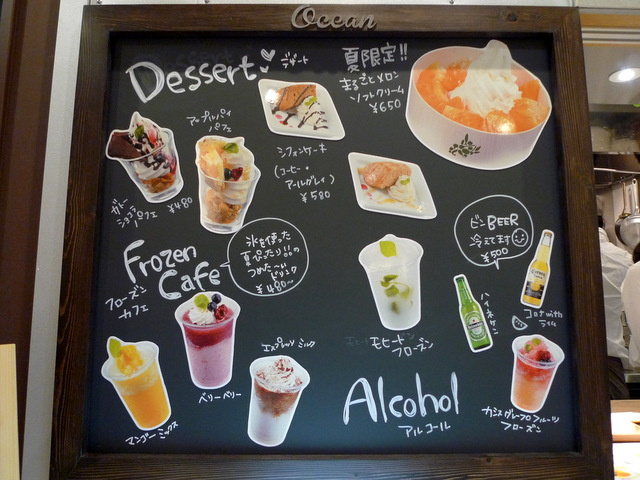 Ocean
Dessert
デザート
夏限定!!
まるごとメロン
ソフトクリーム
¥650
アップルパイ
パフェ
ガトー
ショコラ
パフェ
¥480
シフォンケーキ
(コーヒー・
アールグレイ)
¥580
Frozen
Cafe
フローズン
カフェ
氷を使った
夏ぴったり!!の
つめた〜い
ドリンク
¥480〜
ビンBEER
冷えてます
¥500
ハイネケン
コロナwith
ライム
モヒート
フローズン
エスプレッソミルク
ベリーベリー
マンゴーミックス
Alcohol
アルコール
カシスグレープフルーツ
フローズン